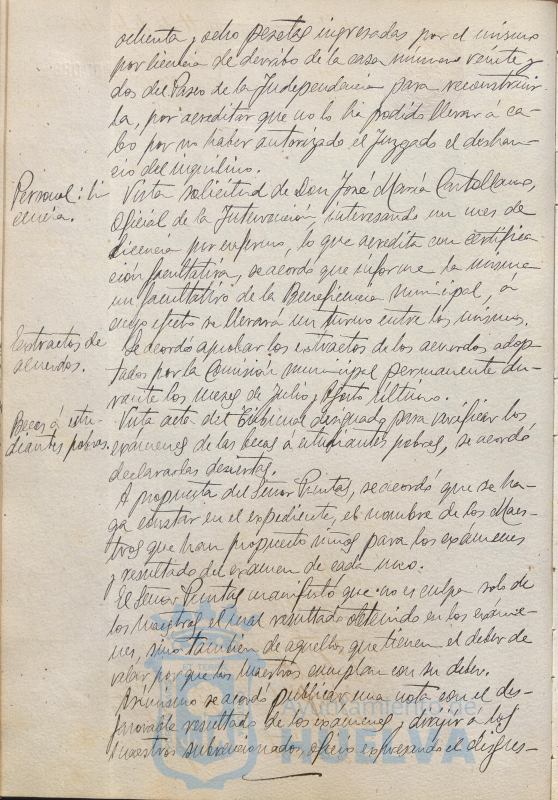 ochenta y ocho pesetas ingresadas por el mismo
por licencia de derribo de la casa número veinte y
dos del Paseo de la Independencia para reconstruir
la, por acreditar que no lo ha podido llevar á ca-
bo por no haber autorizado el Juzgado el deshau-
cio del inquilino.
Personal: li
cencia.
Vista solicitud de Don José María Castellano,
Oficial de la Intervención, interesando un mes de
licencia por enfermo, lo que acredita con certifica
ción facultativa, se acordó que informe la misma
un facultativo de la Beneficencia municipal, a
cuyo efecto se llevará un turno entre los mismos.
Extractos de
acuerdos.
Se acordó aprobar los extractos de los acuerdos adop-
tados por la Comisión municipal permanente du-
rante los meses de Julio y Agosto últimos.
Becas á estu-
diantes pobres.
Vista acta del Tribunal designado para verificar los
exámenes de las becas a estudiantes pobres, se acordó
declararlas desiertas.
A propuesta del Señor Puntas, se acordó que se ha-
ga constar en el expediente, el nombre de los Maes-
tros que han propuesto niños para los exámenes
y resultado del examen de cada uno.
El Señor Puntas manifestó que no es culpa solo de
los maestros el mal resultado obtenido en los exáme-
nes, sino también de aquellos que tienen el deber de
velar por que los maestros cumplan con su deber.
Asimismo se acordó publicar una nota con el des-
favorable resultado de los exámenes y dirigir a los
maestros subvencionados, oficio expresando el disgus-
Ayuntamiento de
HUELVA